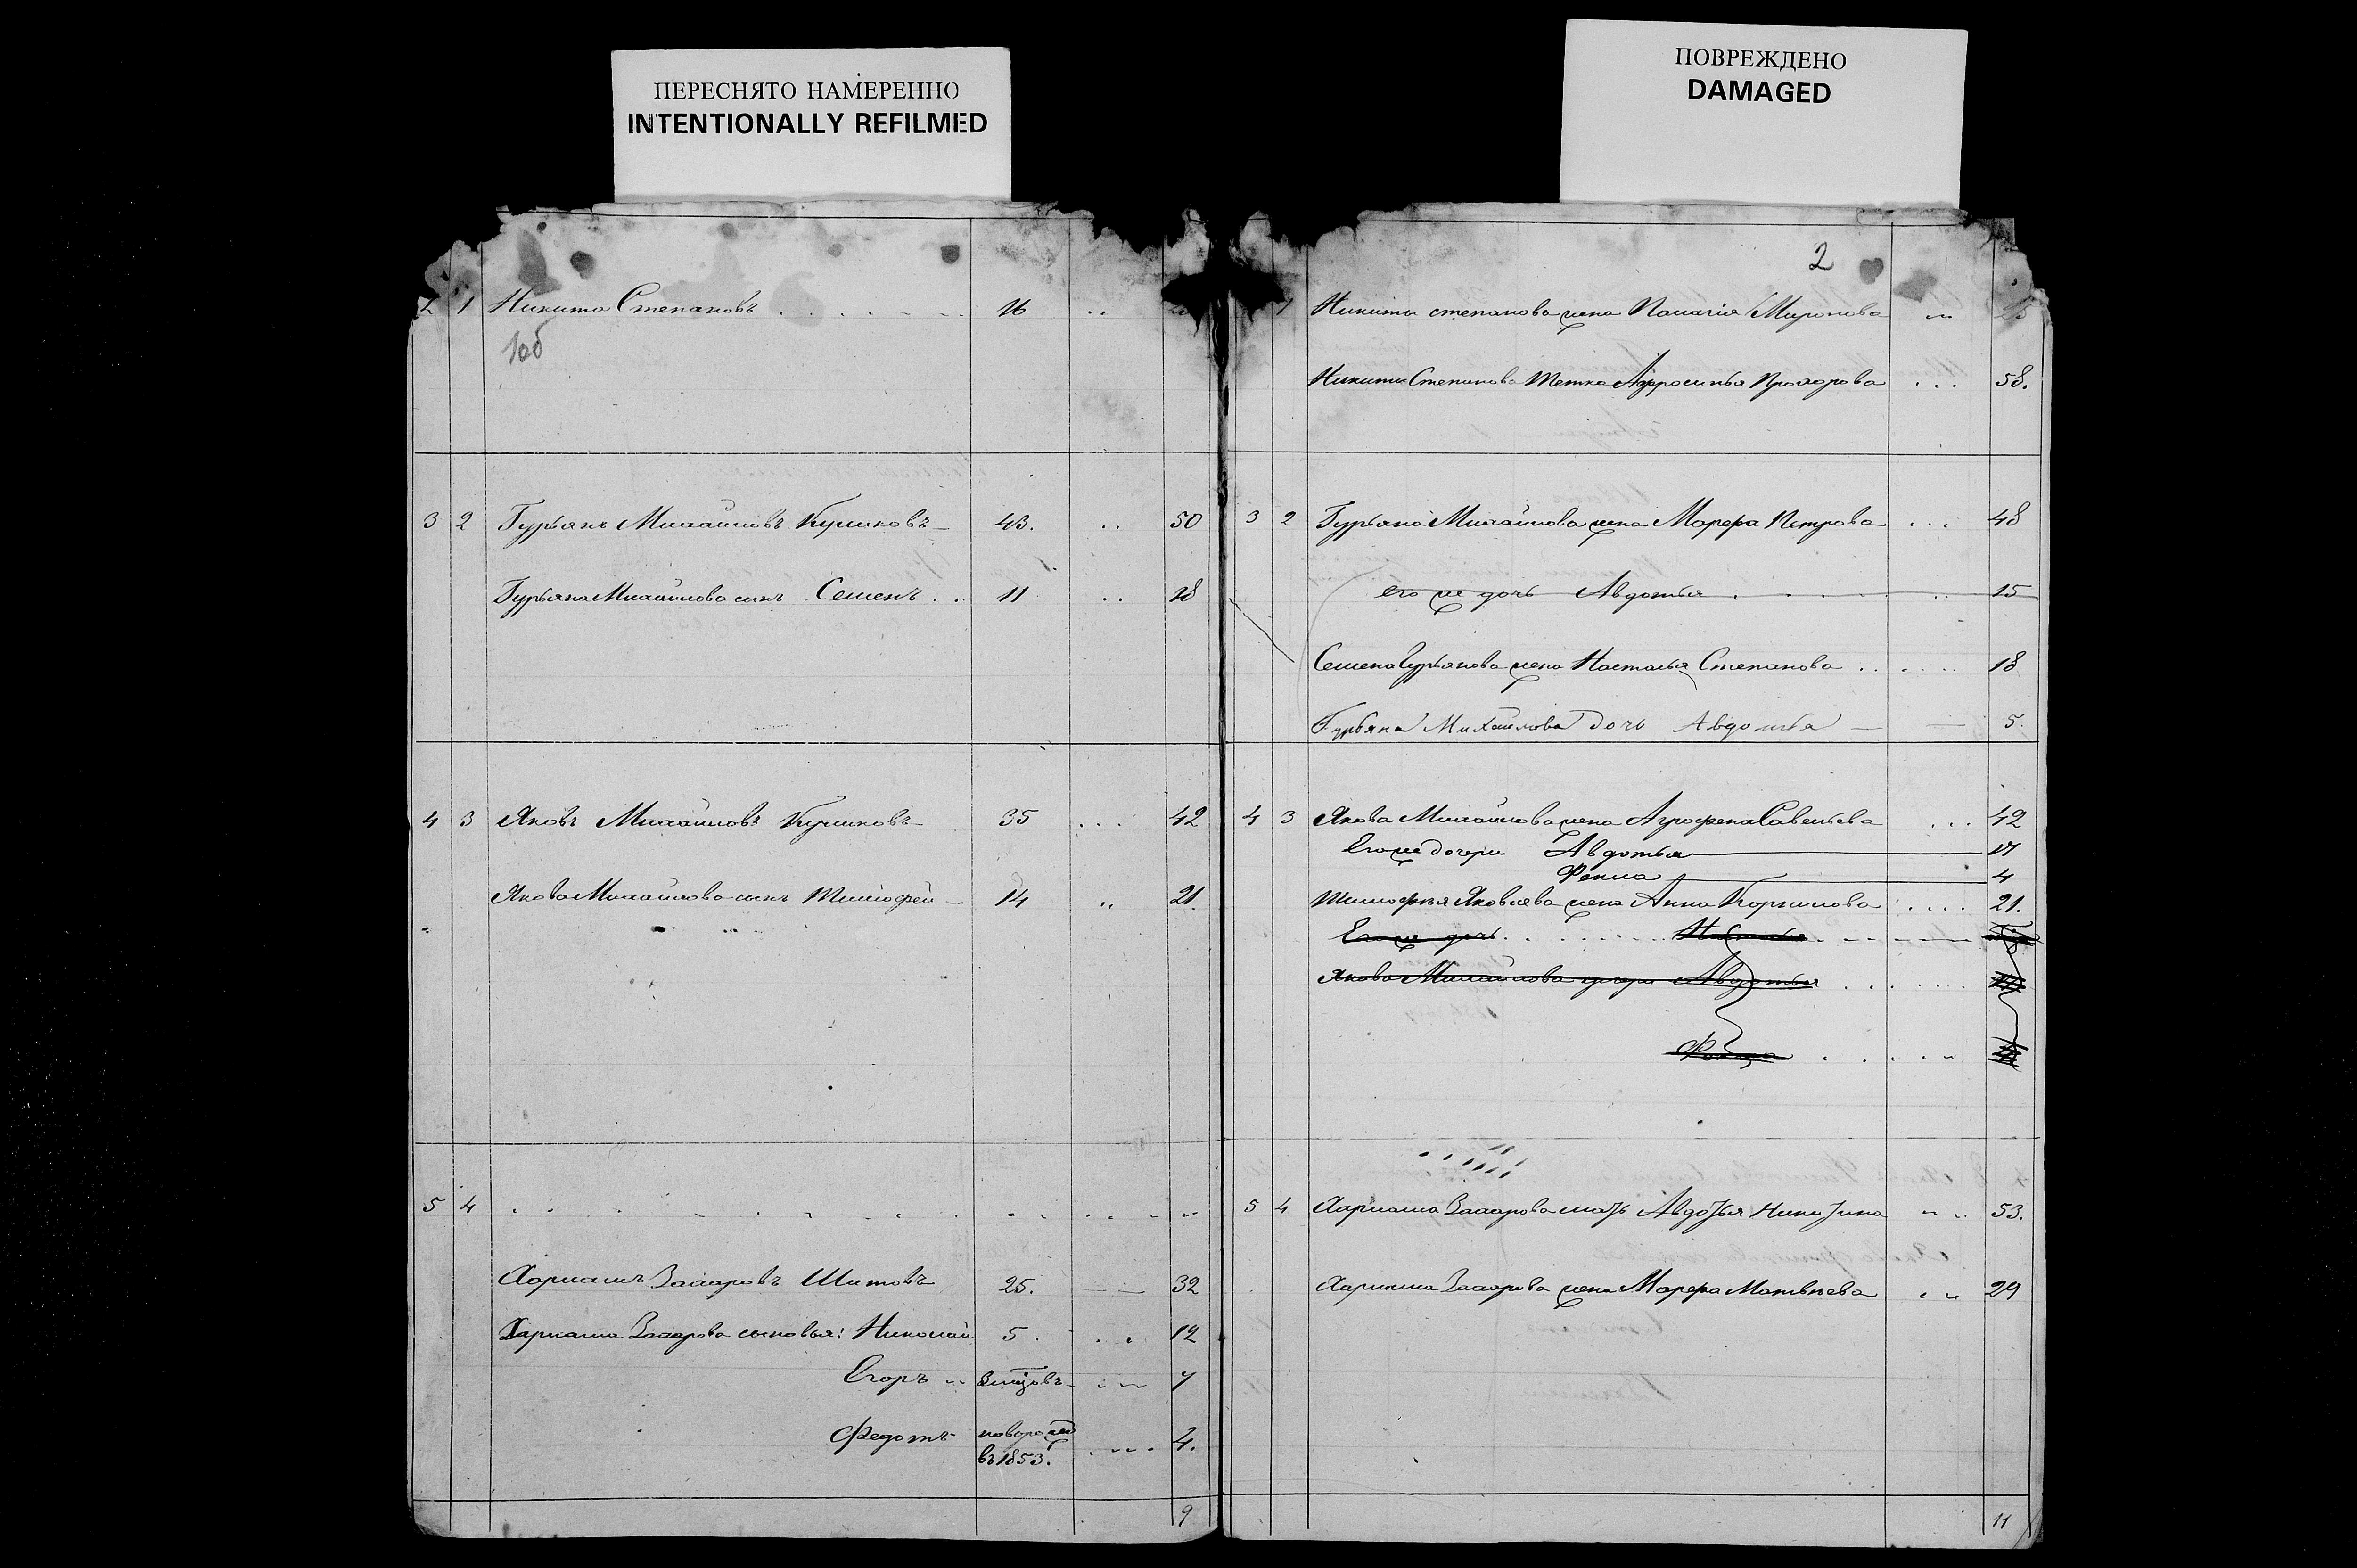 ПЕРЕСНЯТО НАМЕРЕННО
INTENTIONALLY REFILMED
ПОВРЕЖДЕНО
DAMAGED
1 Никита Степановъ 16
1об
3 2 Гурьянъ Михайловъ 43. 50
Гурьяна Михайлова сынъ Семенъ 11 18
4 3 Яковъ Михайловъ 35 42
Якова Михайлова сынъ Тимофей 14 21.
5 4
Харлампъ Захаровъ Шитовъ 25. 32
Харлампа Захарова сыновья: Николай 5. 12
Егоръ 7
Федотъ новорожд 4.
въ 1853.
9
2
1 Никиты Степанова жена Пелагія Миронова
Никиты Степанова тетка Афросинья Прохорова 58.
3 2 Гурьяна Михайлова жена Марфа Петрова 48
его же дочь Авдотья 15
Семена Гурьянова жена Настасья Степанова 18
Гурьяна Михайлова дочь Авдотья 5.
4 3 Якова Михайлова жена Аграфена Савельева 42
Его же дочери Авдотья 17
Фекла 4
Тимофея Яковлева жена Анна Корнилова 21.
Его же дочь Настасья
Якова Михайлова дочери Авдотья
Фекла
5 4 Харлампа Захарова мать Авдотья Никитина 53.
Харлампа Захарова жена Марфа Матвѣева 29
11